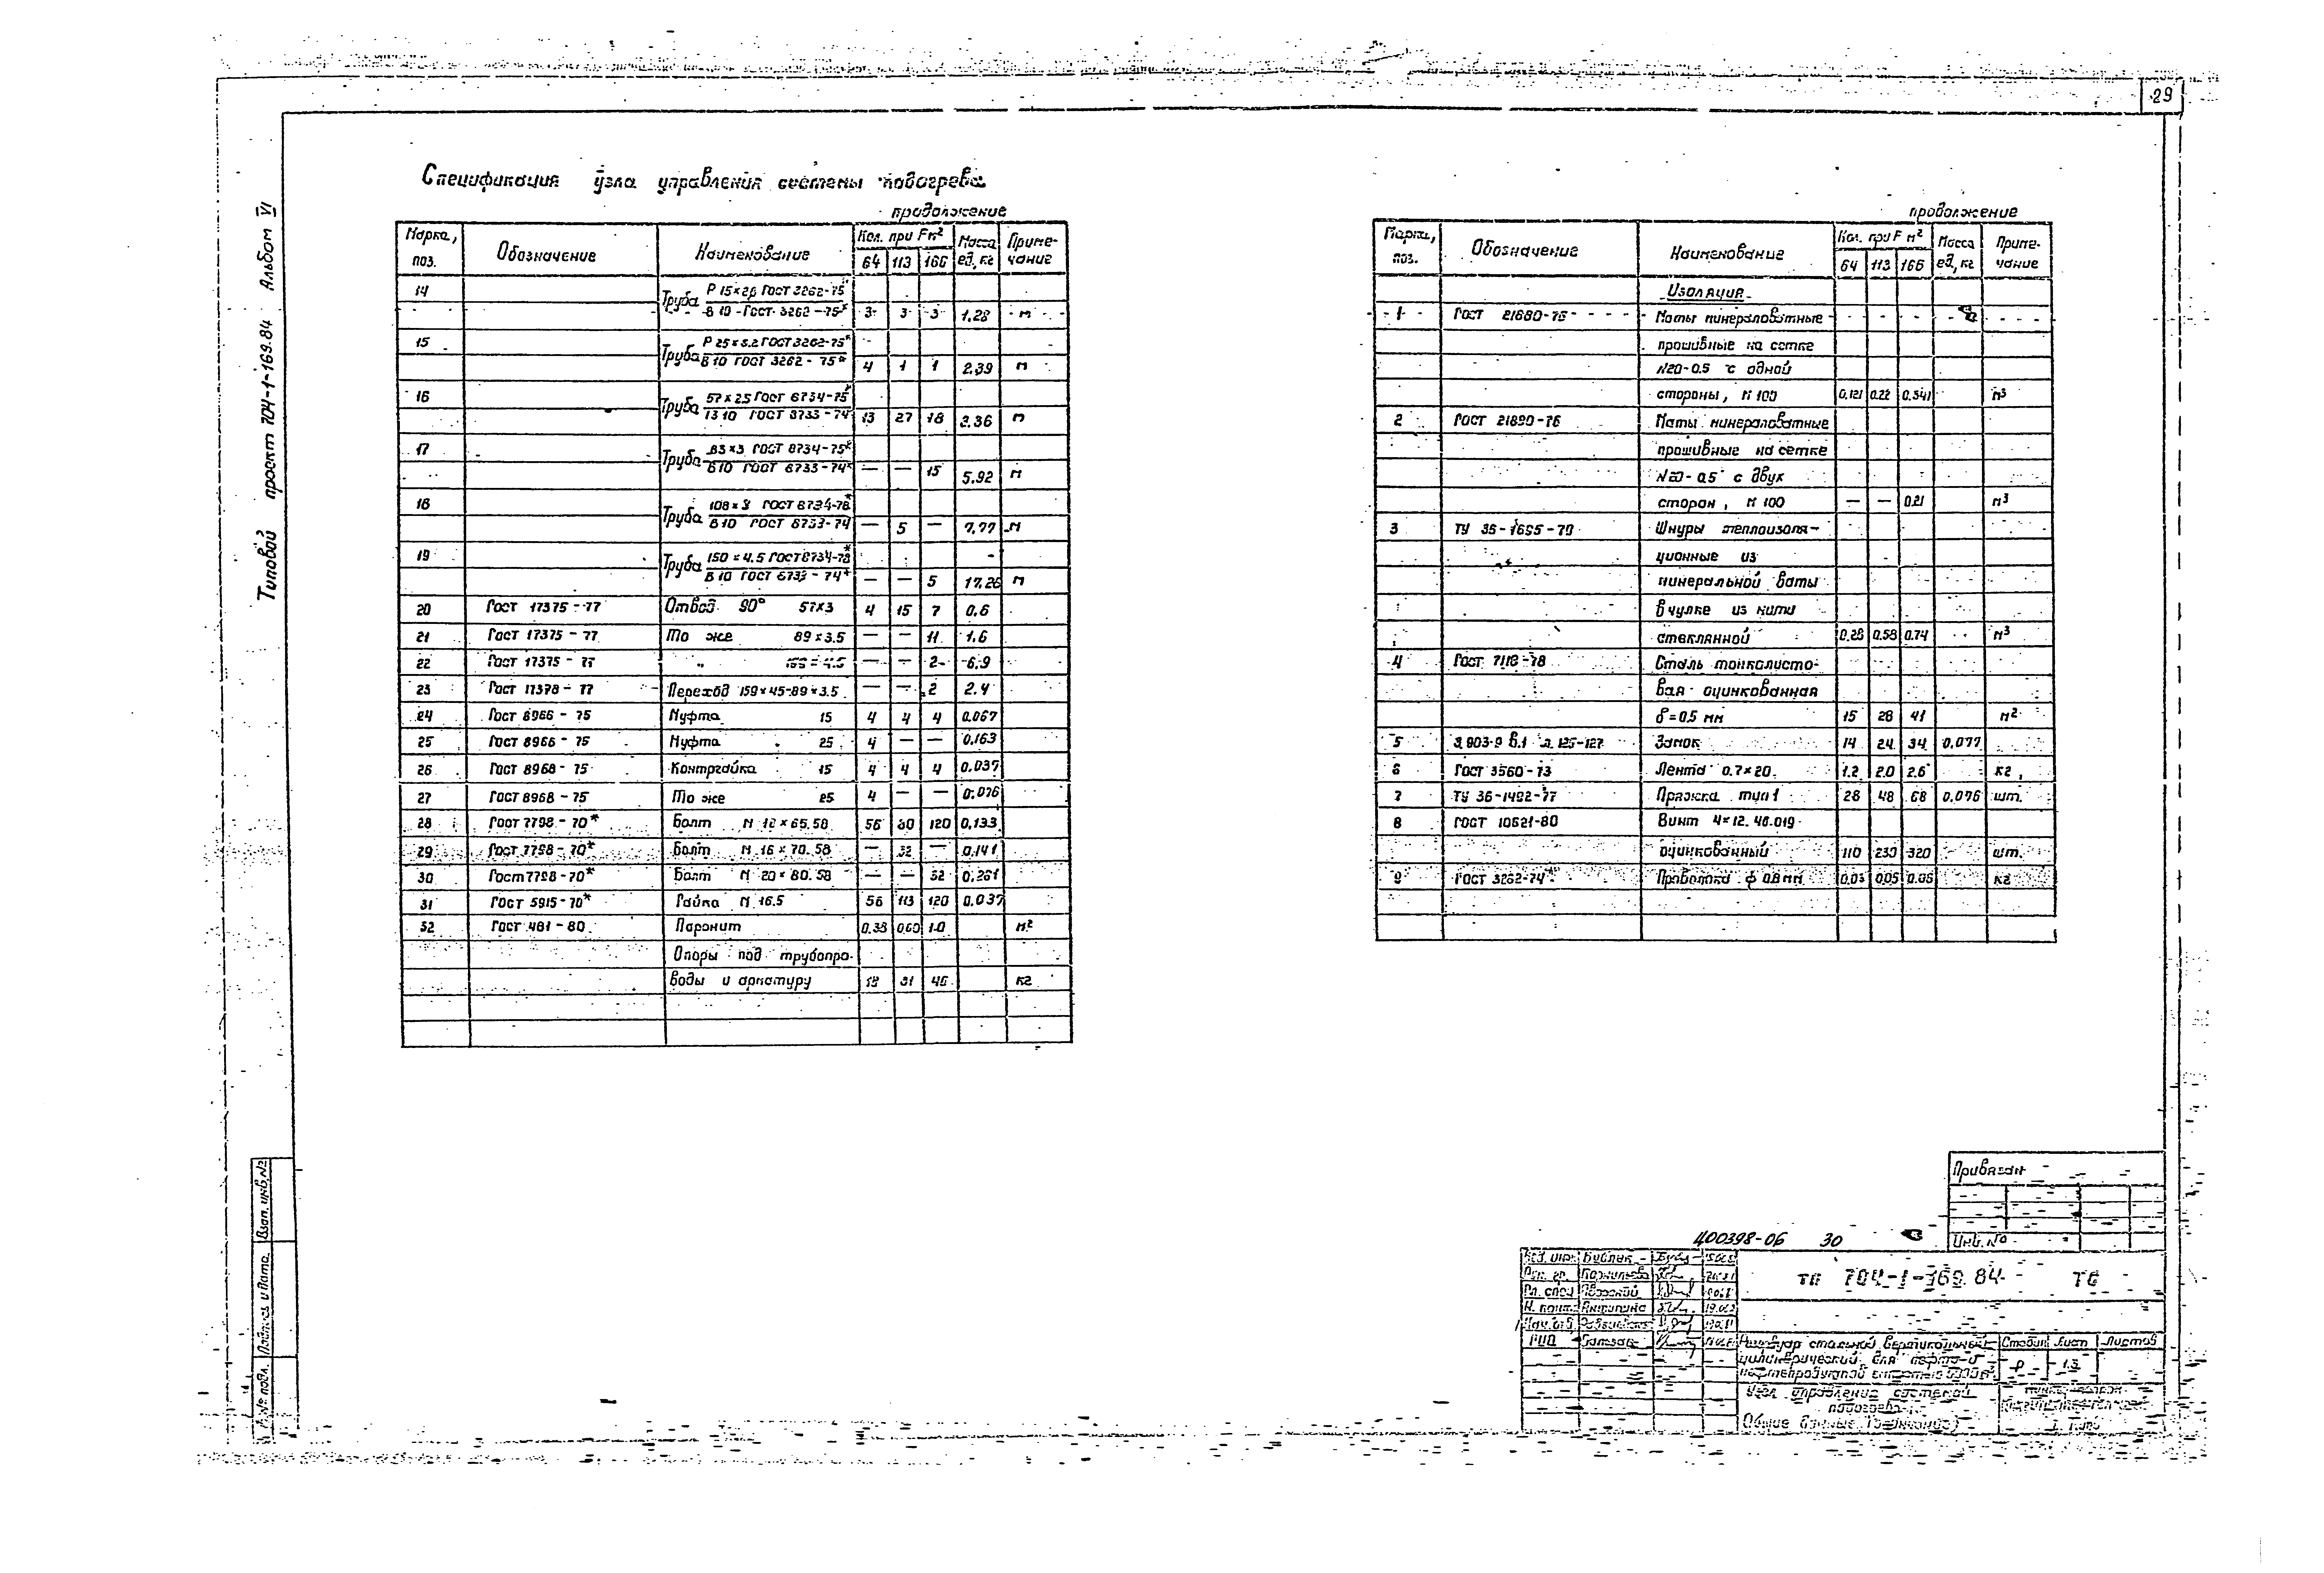 29
Типовой проект 704-1-169.84 Альбом VI
Спецификация узла управления системы подогрева
продолжение
Марка, поз. Обозначение Наименование Кол. при F м² 64 113 166 Масса ед, кг Приме-чание
14 Труба Р 15×2,8 ГОСТ 3262-75*
В 10 ГОСТ 3262-75* 3 3 3 1.28 м
15 Труба Р 25×3.2 ГОСТ 3262-75*
В 10 ГОСТ 3262-75* 4 1 1 2.39 м
16 Труба 57×2.5 ГОСТ 8734-75*
ГОСТ 8733-74 13 27 18 3.36 м
17 Труба ×3 ГОСТ 8734-75*
В 10 ГОСТ 8733-74* — — 15 5.92 м
18 Труба 108×3 ГОСТ 8734-78*
В 10 ГОСТ 8733-74 — 5 — 7.77 м
19 Труба 4.5 ГОСТ 8734-78*
В 10 ГОСТ 8733-74* — — 5 17.26 м
20 Гост 17375-77 Отвод 90° 57×3 4 15 7 0.6
21 Гост 17375-77 То же 89×3.5 — — 11 1.6
22 Гост 17375-77 „ — — 2 6.9
23 Гост 17378-77 Переход 159×45-89×3.5 — — 2 2.4
24 Гост 8966-75 Муфта 15 4 4 4 0.067
25 Гост 8966-75 Муфта 25 4 — — 0.163
26 Гост 8968-75 Контргайка 15 4 4 4 0.037
27 Гост 8968-75 То же 25 4 — — 0.076
28 Гост 7798-70* Болт М 16×65.58 56 80 120 0.133
29 Гост 7798-70* Болт М 16×70.58 — 32 — 0.141
30 Гост 7798-70* Болт М 20×80.58 — — 32 0.261
31 Гост 5915-70* Гайка М 16.5 56 113 120 0.037
32 Гост 481-80 Паронит 0.38 1.0 м²
Опоры под трубопро-
воды и арматуру 31 46 кг
продолжение
Марка, поз. Обозначение Наименование Кол. при F м² 64 113 166 Масса ед, кг Приме-чание
Изоляция
1 Гост 21880-76 Маты минераловатные
прошивные на сетке
N20-0.5 с одной
стороны, М 100 0.121 0.22 0.341 м³
2 Гост 21880-76 Маты минераловатные
прошивные на сетке
N20-0.5 с двух
сторон, М 100 — — 0.21 м³
3 ТУ 36-1695-79 Шнуры теплоизоля-
ционные из
минеральной ваты
в чулке из нити
стеклянной 0.28 0.58 0.74 м³
4 Гост 7118-78 Сталь тонколисто-
вая оцинкованная
δ=0.5 мм 15 28 41 м²
5 3.903-9 в.1 л. 125-127 Замок 14 24 34 0.077
6 Гост 3560-73 Лента 0.7×20 1.2 2.0 2.6 кг
7 ТУ 36-1492-77 Пряжка тип 1 28 48 68 0.076 шт.
8 ГОСТ 10621-80 Винт 4×12.46.019
оцинкованный 110 230 320 шт.
9 ГОСТ 3282-74* Проволока ф 0.8 мм 0.03 0.05 0.06 кг
Привязан
Инв. №
400398-06 30
Бублик
Рук. гр.
Гл. спец
Н. конт. Антипина
Нач. отд.
ГИП
тп 704-1-169.84 ТС
Резервуар стальной вертикальный
цилиндрический для нефти и
нефтепродуктов
Узел управления системой
подогрева
Общие данные (окончание)
Стадия Лист Листов
Р 1.3
Взам. инв. №
Подпись и дата
Инв. № подл.